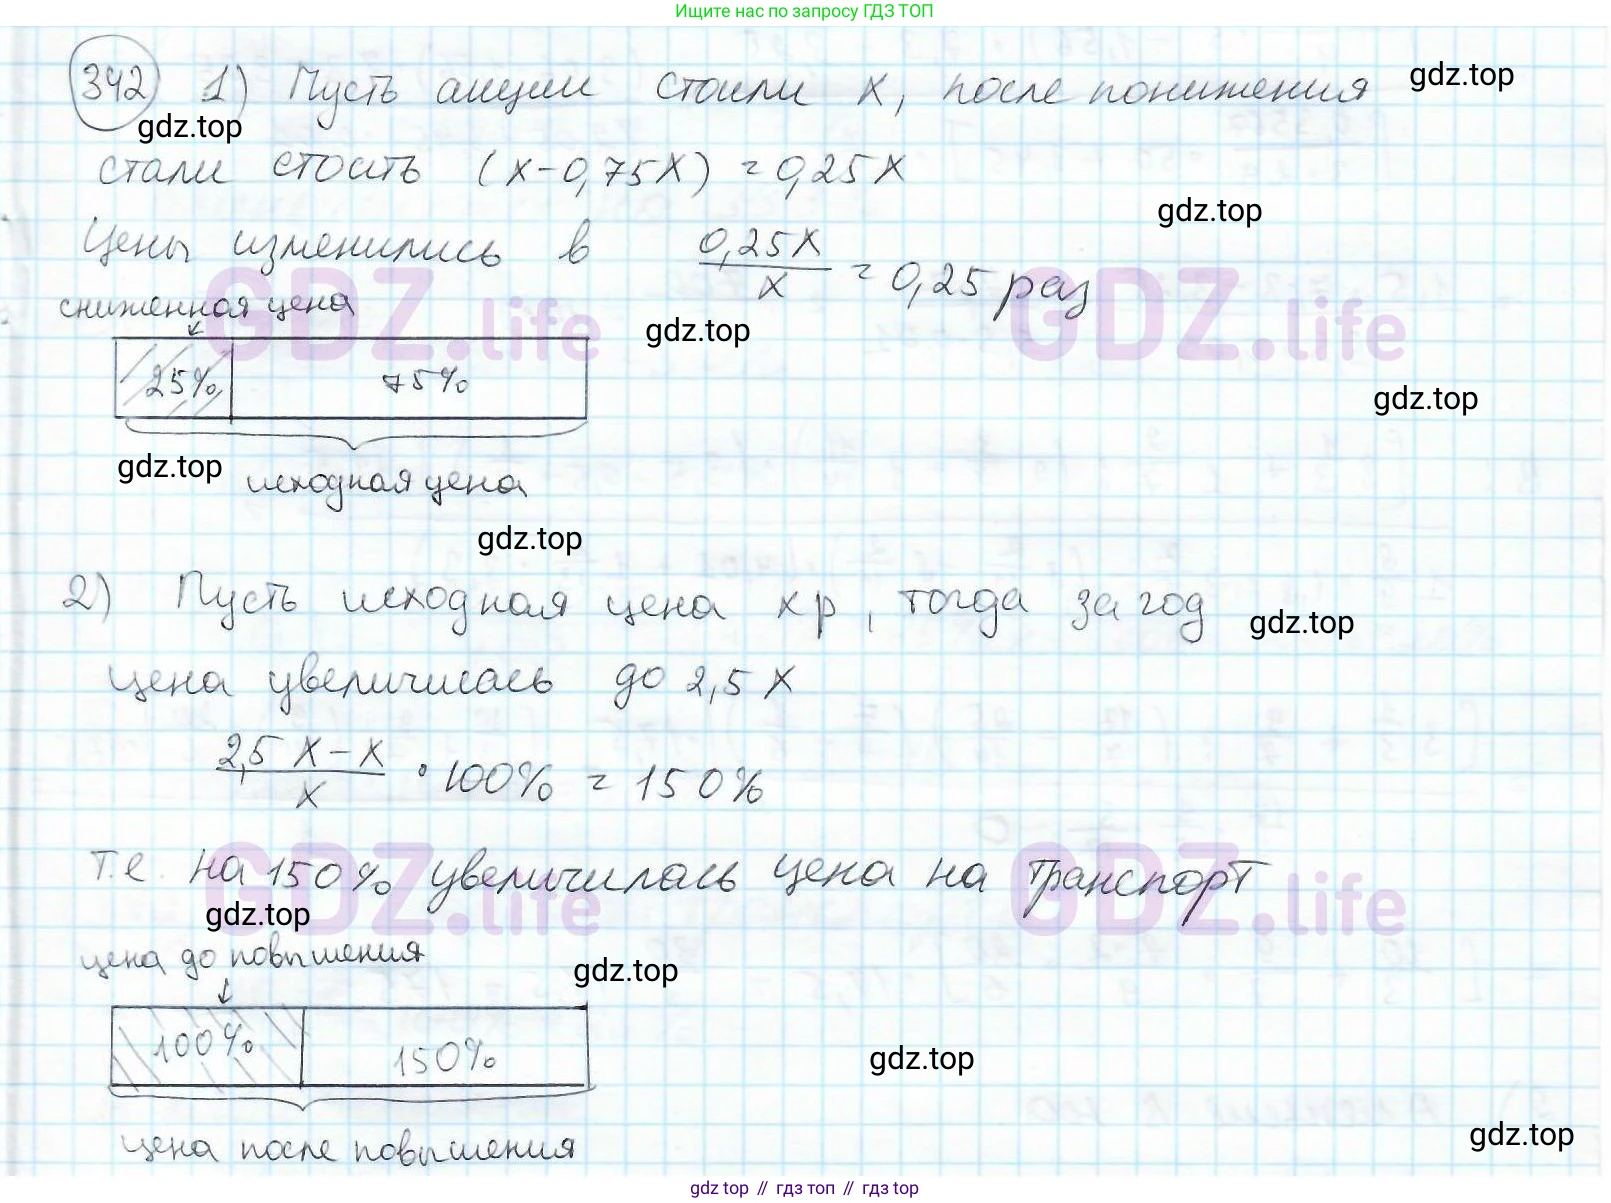 Ищите нас по запросу ГДЗ ТОП
342 1) Пусть акции стоили x, после понижения
gdz.top
gdz.top
стали стоить (x-0,75x) = 0,25x
gdz.top
Цены изменились в 0,25x/x = 0,25 раз
сниженная цена
GDZ.life
GDZ.life
gdz.top
25% 75%
gdz.top
gdz.top
исходная цена
gdz.top
2) Пусть исходная цена x р, тогда за год
gdz.top
цена увеличилась до 2,5x
2,5x-x/x · 100% = 150%
т.е. на 150% увеличилась цена на транспорт
GDZ.life
GDZ.life
gdz.top
цена до повышения
gdz.top
100% 150%
gdz.top
gdz.top
цена после повышения
gdz top // гдз топ // гдз top